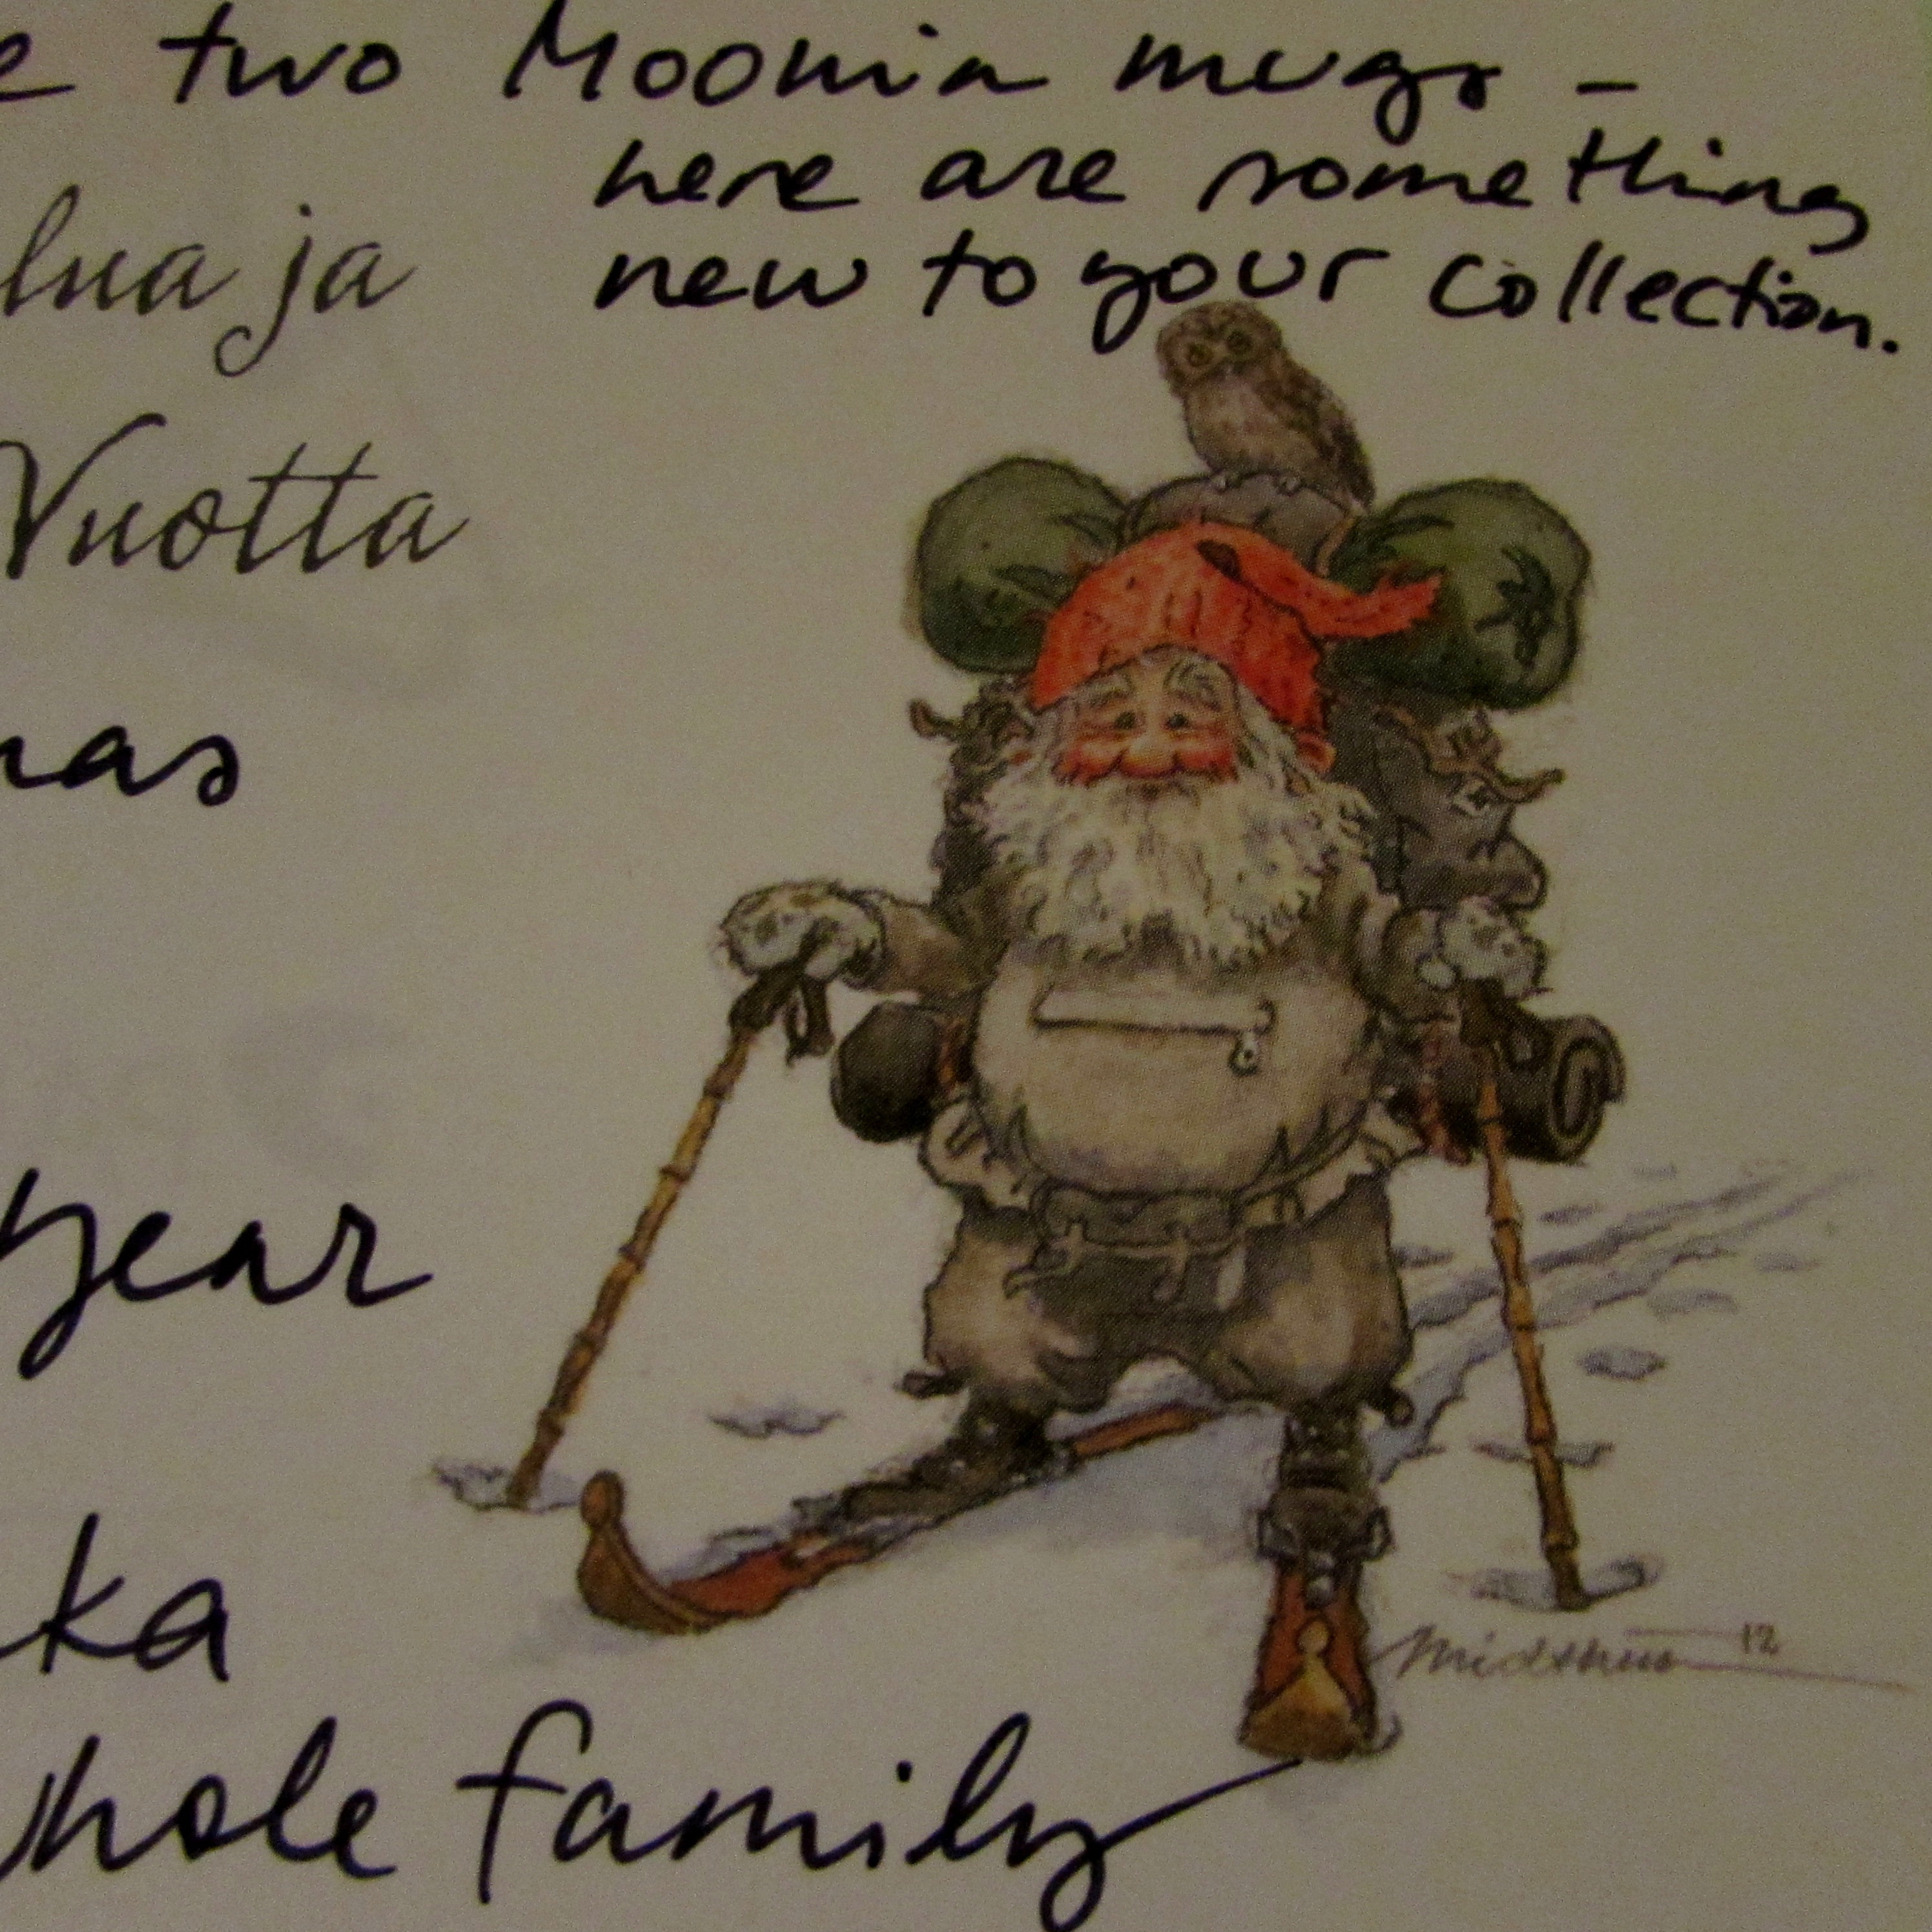 two Moomin mugs -
here are something
new to your collection.
lua ja
Vuotta
nas
year
ka
hole family
12